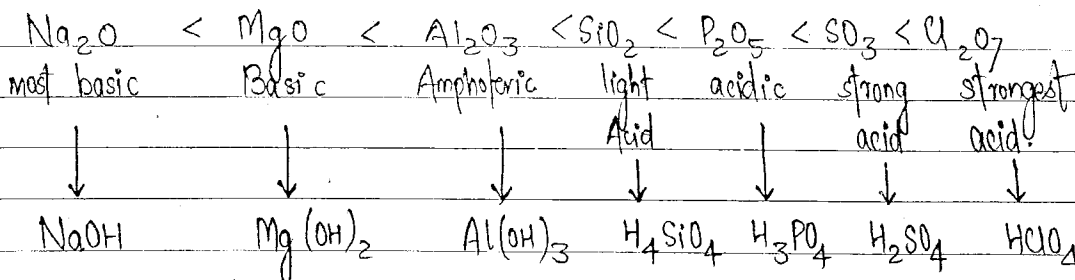 Na₂O < MgO < Al₂O₃ < SiO₂ < P₂O₅ < SO₃ < Cl₂O₇
most basic Basic Amphoteric light acidic strong strongest
Acid acid acid.
↓ ↓ ↓ ↓ ↓ ↓ ↓
NaOH Mg(OH)₂ Al(OH)₃ H₄SiO₄ H₃PO₄ H₂SO₄ HClO₄